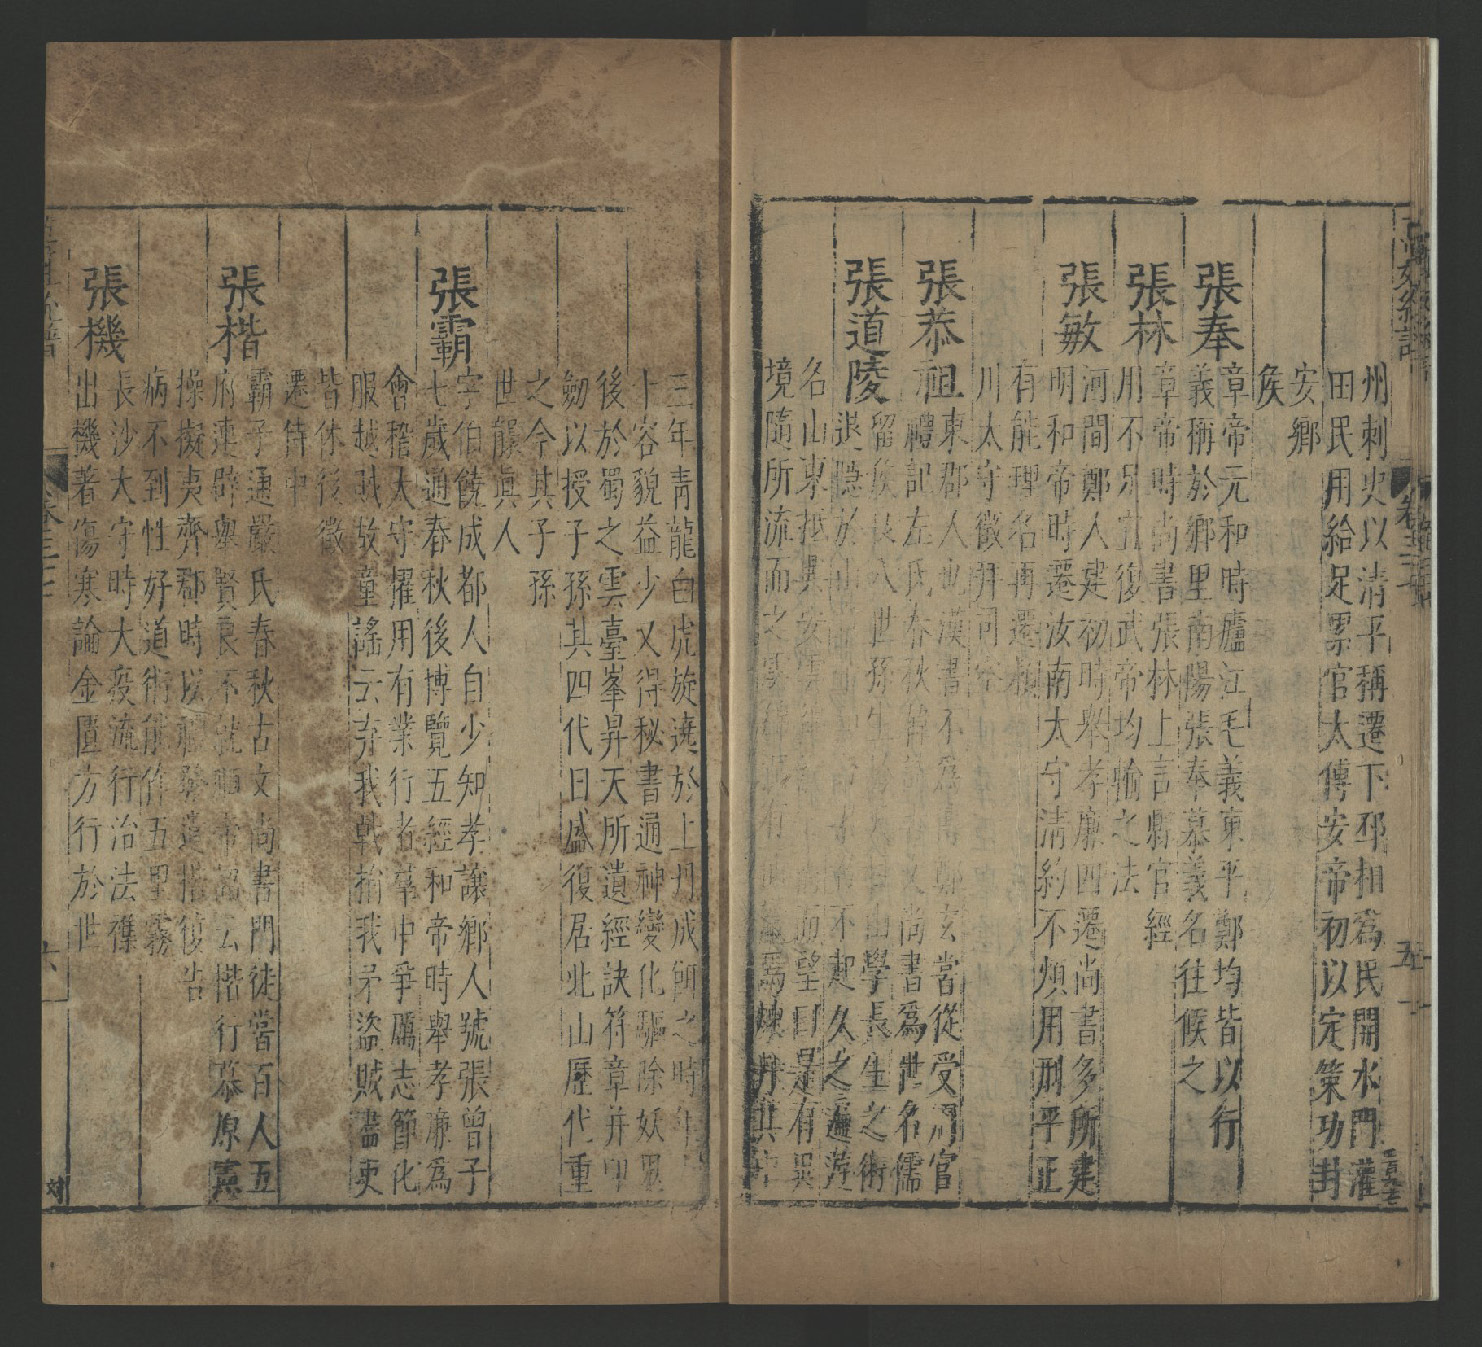 州刺史以清平稱遷下邳相爲民開水門灌
田民用給足累官太傅安帝初以定策功封
安鄉
侯
張奉章帝元和時廬江毛義東平鄭均皆以行
義稱於鄉里南陽張奉慕義名往候之
張林章帝時尚書張林上言縣官經
用不足宜復武帝均輸之法
張敏河間鄭人建初時舉孝廉四遷尚書多所建
明和帝時遷汝南太守清約不煩用刑平正
有能理名再還潁
川太守徵拜司空
張恭祖東郡人也漢書不爲鄭玄嘗從受周官
禮記左氏春秋韓詩尚書爲世名儒
張道陵留侯良八世孫生學長生之術
退隱於山不起久之遍遊
名山東抵興安雲而望曰是有異
境隨所流而之雲爲煉丹其
三年青龍白虎旋遶於上丹成餌之時年
十容貌益少又得秘書通神變化驅除妖鬼
後於蜀之雲臺峯昇天所遺經訣符章并印
劒以授子孫其四代曰盛復居此山歷代重
之今其子孫
世襲真人
張霸字伯饒成都人自少知孝讓鄉人號張曾子
七歲通春秋後博覽五經和帝時舉孝廉爲
會稽太守擢用有業行者郡中爭厲志節化
服越賊散童謠云弃我戟捐我矛盜賊盡吏
皆休後徵
遷侍中
張楷霸子通嚴氏春秋古文尚書門徒嘗百人五
府連辟舉賢良不就順帝詔云楷行慕原憲
操擬夷齊郡時以禮發遣楷復告
病不到性好道術能作五里霧
張機長沙太守時大疫流行治法襍
出機著傷寒論金匱方行於世